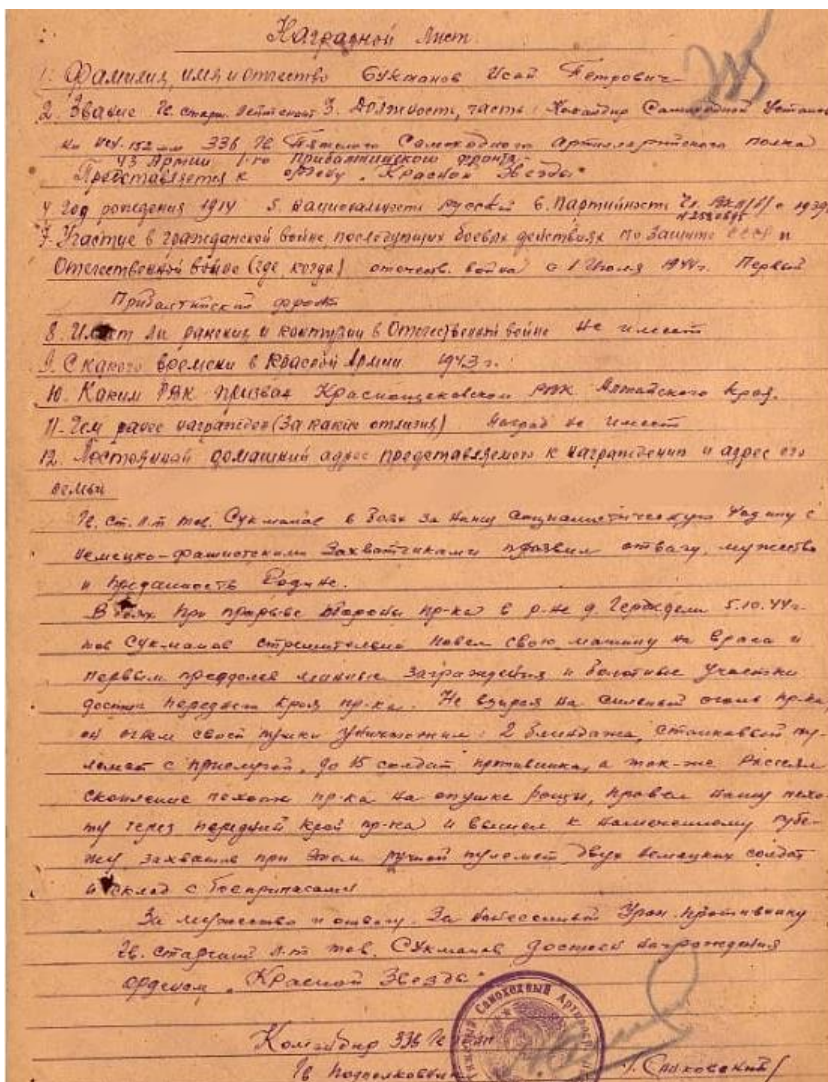 Наградной Лист
1. Фамилия, имя и отчество Сукманов Исай Петрович
2. Звание Гв. старш. лейтенант 3. Должность, часть: Командир Самоходной Установ
ки ИСУ-152 мм 336 Гв Тяжелого Самоходного артиллерийского полка
43 Армии 1-го прибалтийского фронта
Представляется к ордену „Красной Звезды“
4 Год рождения 1914 5. национальность русский 6. Партийность Чл. ВКП/б/ с 1939
7. Участие в гражданской войне, последующих боевых действиях по защите СССР и
Отечественной войне (где, когда) отечеств. война с 1 Июля 1944г. Первый
Прибалтийский фронт
8. Имеет ли ранения и контузии в Отечественной войне не имеет
9. С какого времени в Красной Армии 1943 г.
10. Каким РВК призван Краснощековским РВК Алтайского Края.
11. Чем ранее награжден (за какие отличия) Наград не имеет
12. Постоянный домашний адрес представляемого к награждению и адрес его
семьи
Гв. ст. л-т тов. Сукманов в боях за нашу социалистическую Родину с
немецко-фашистскими захватчиками проявил отвагу, мужество
и преданность Родине.
В боях при прорыве обороны пр-ка в р-не д. 5.10.44г.
тов Сукманов стремительно повел свою машину на врага и
первым преодолев минные заграждения и болотные участки
достиг переднего края пр-ка. Не взирая на сильный огонь пр-ка,
он огнем своей пушки уничтожил: 2 блиндажа, станковый пу-
лемет с прислугой, до 15 солдат противника, а так-же рассеял
скопление пехоты пр-ка на опушке рощи, провел нашу пехо-
ту через передний край пр-ка и вышел к намеченному рубе-
жу, захватив при этом ручной пулемет, двух немецких солдат
и склад с боеприпасами
За мужество и отвагу. За нанесенный Урон противнику
Гв. старший л-т тов. Сукманов достоен награждения
орденом „Красной Звезды“
Командир 336 Гв
Гв подполковник
Самоходный Артиллер